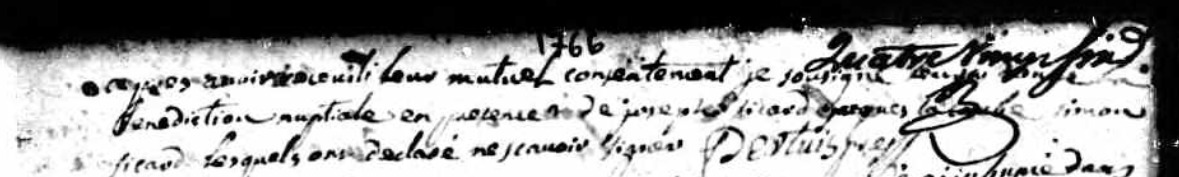 1766
Quatre Vingt
apres avoir receuilli leur mutuel consentement je sousigné leur ai donné
benediction nuptiale en presence de joseph sicard jacques simon
sicard lesquels ont declaré ne scavoir signer
inhumé dans